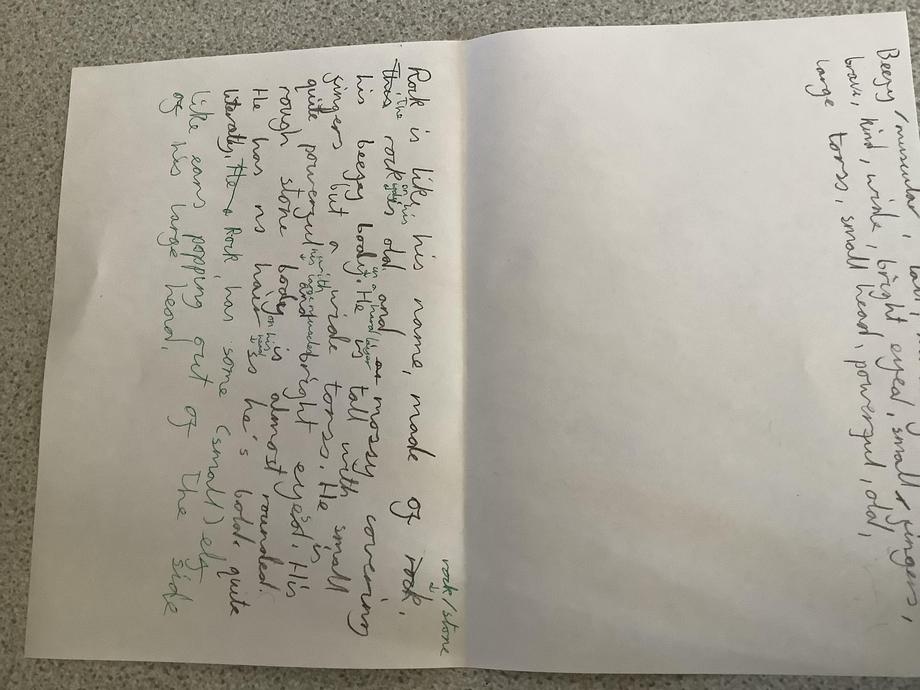 Beefy / muscular,
brave, kind, wide, bright eyed, small fingers,
large torso, small head, powerful, old,
rock/stone
Rock is like his name, made of rock.
This The rock on his body is old and as mossy covering
his beefy body. in a hard layer He is tall with small
fingers but a wide torso. He is
quite powerful with his large muscles and bright eyes. His
rough stone body is almost rounded.
He has no hair on his head so he's bold. quite
literally. He a Rock has some (small) elf
like ears popping out of the side
of his large head.